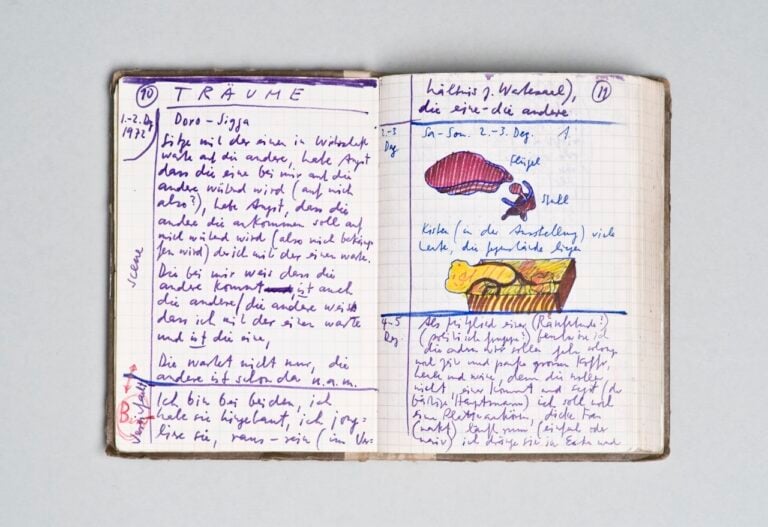 10
TRÄUME
1.-2. Dez
1972
Doro-Sigga
Sitze mit der einen in Wirtschaft
warte auf die andere, habe Angst
dass die eine bei mir auf die
andere wütend wird (auf mich
also?), habe Angst, dass die
andere die ankommen soll auf
mich wütend wird (also mich
wird) da ich mit der einen warte.
Scene
Die bei mir weis dass die
andere kommt ist auch
die andere/die andere weis
dass ich mit der einen warte
und ist die eine,
Die wartet nicht nur, die
andere ist schon da u.a.m.
B
Ich bin bei beiden, ich
habe sie hingebaut, ich jong-
liere sie, raus-rein (im Ver-
hältnis z. Wartesaal),
die eine-die andere.
11
2.-3.
Dez
Sa-Son. 2.-3. Dez.
Flügel
Kisten (in der Ausstellung) viele
Leute, die Gegenstände
4-5
Dez.
Als Mitglied einer
(politisch Gruppe?)
die andern wir sollen
und
Leute und wir, denn die wollen
nicht, einer kommt und sagt (der
Hauptmann) ich soll mal
eine dicke Frau
(nackt) läuft rum (einfach oder
naiv) ich dränge sie in Ecke und